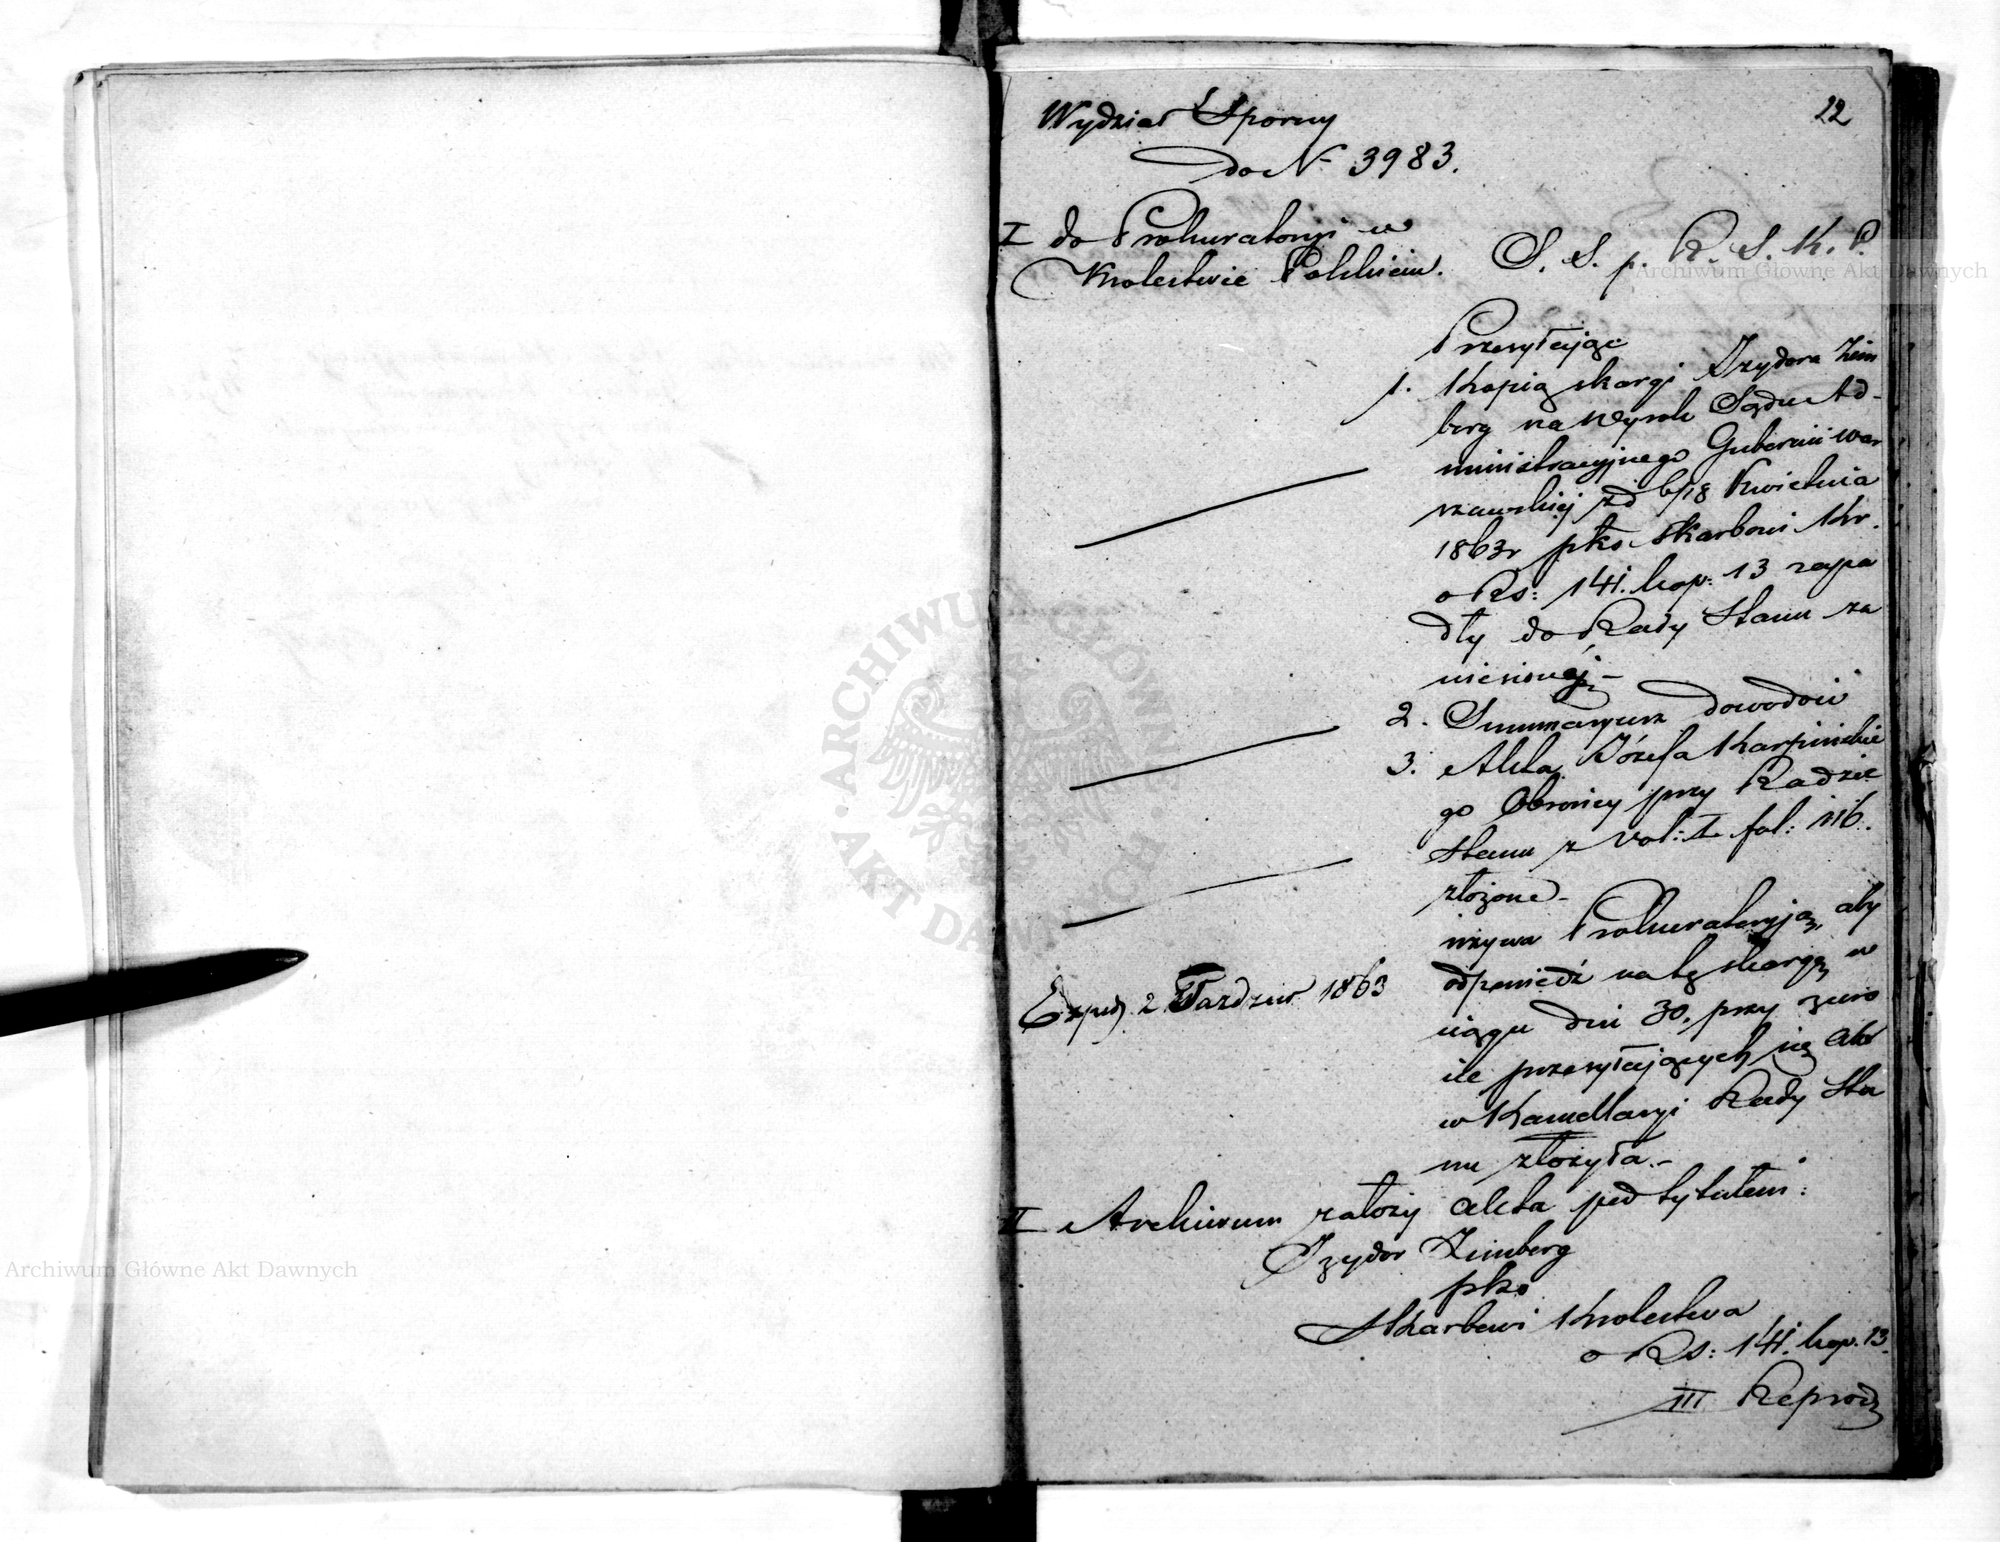 22
Wydział Sporny
do N 3983.
I do Prokuratoryi w
Krolestwie Polskiem.
S. S. p. R. S. K. P.
Przesyłając
1. Kopią skargi Izydora Zim
berg na wyrok Sądu Ad-
ministracyjnego Gubernii War
szawskiej z d 6/18 Kwietnia
1863r pko Skarbowi Kr.
o Rs: 141. kop: 13 zapa
dły do Rady Stanu za
niesionéj.-
2. Summaryusz dowodow
3. Akta Józefa Karpińskie
go Obrońcy przy Radzie
Stanu z vol: I fol: 116.
złożone-
wzywa Prokuratoryją, aby
odpowiedź na tę skargę w
ciągu dni 30, przy zwro
cie przesyłających się akt
w Kancellaryi Rady Sta
nu złożyła.-
Exped 2 Pazdzier 1863
II Archiwum założy akta pod tytułem:
Izydor Zimberg
pko
Skarbowi Krolestwa
o Rs: 141. kop. 13.
III Reprod
Archiwum Główne Akt Dawnych
Archiwum Główne Akt Dawnych
ARCHIWUM GŁÓWNE · AKT DAWNYCH ·